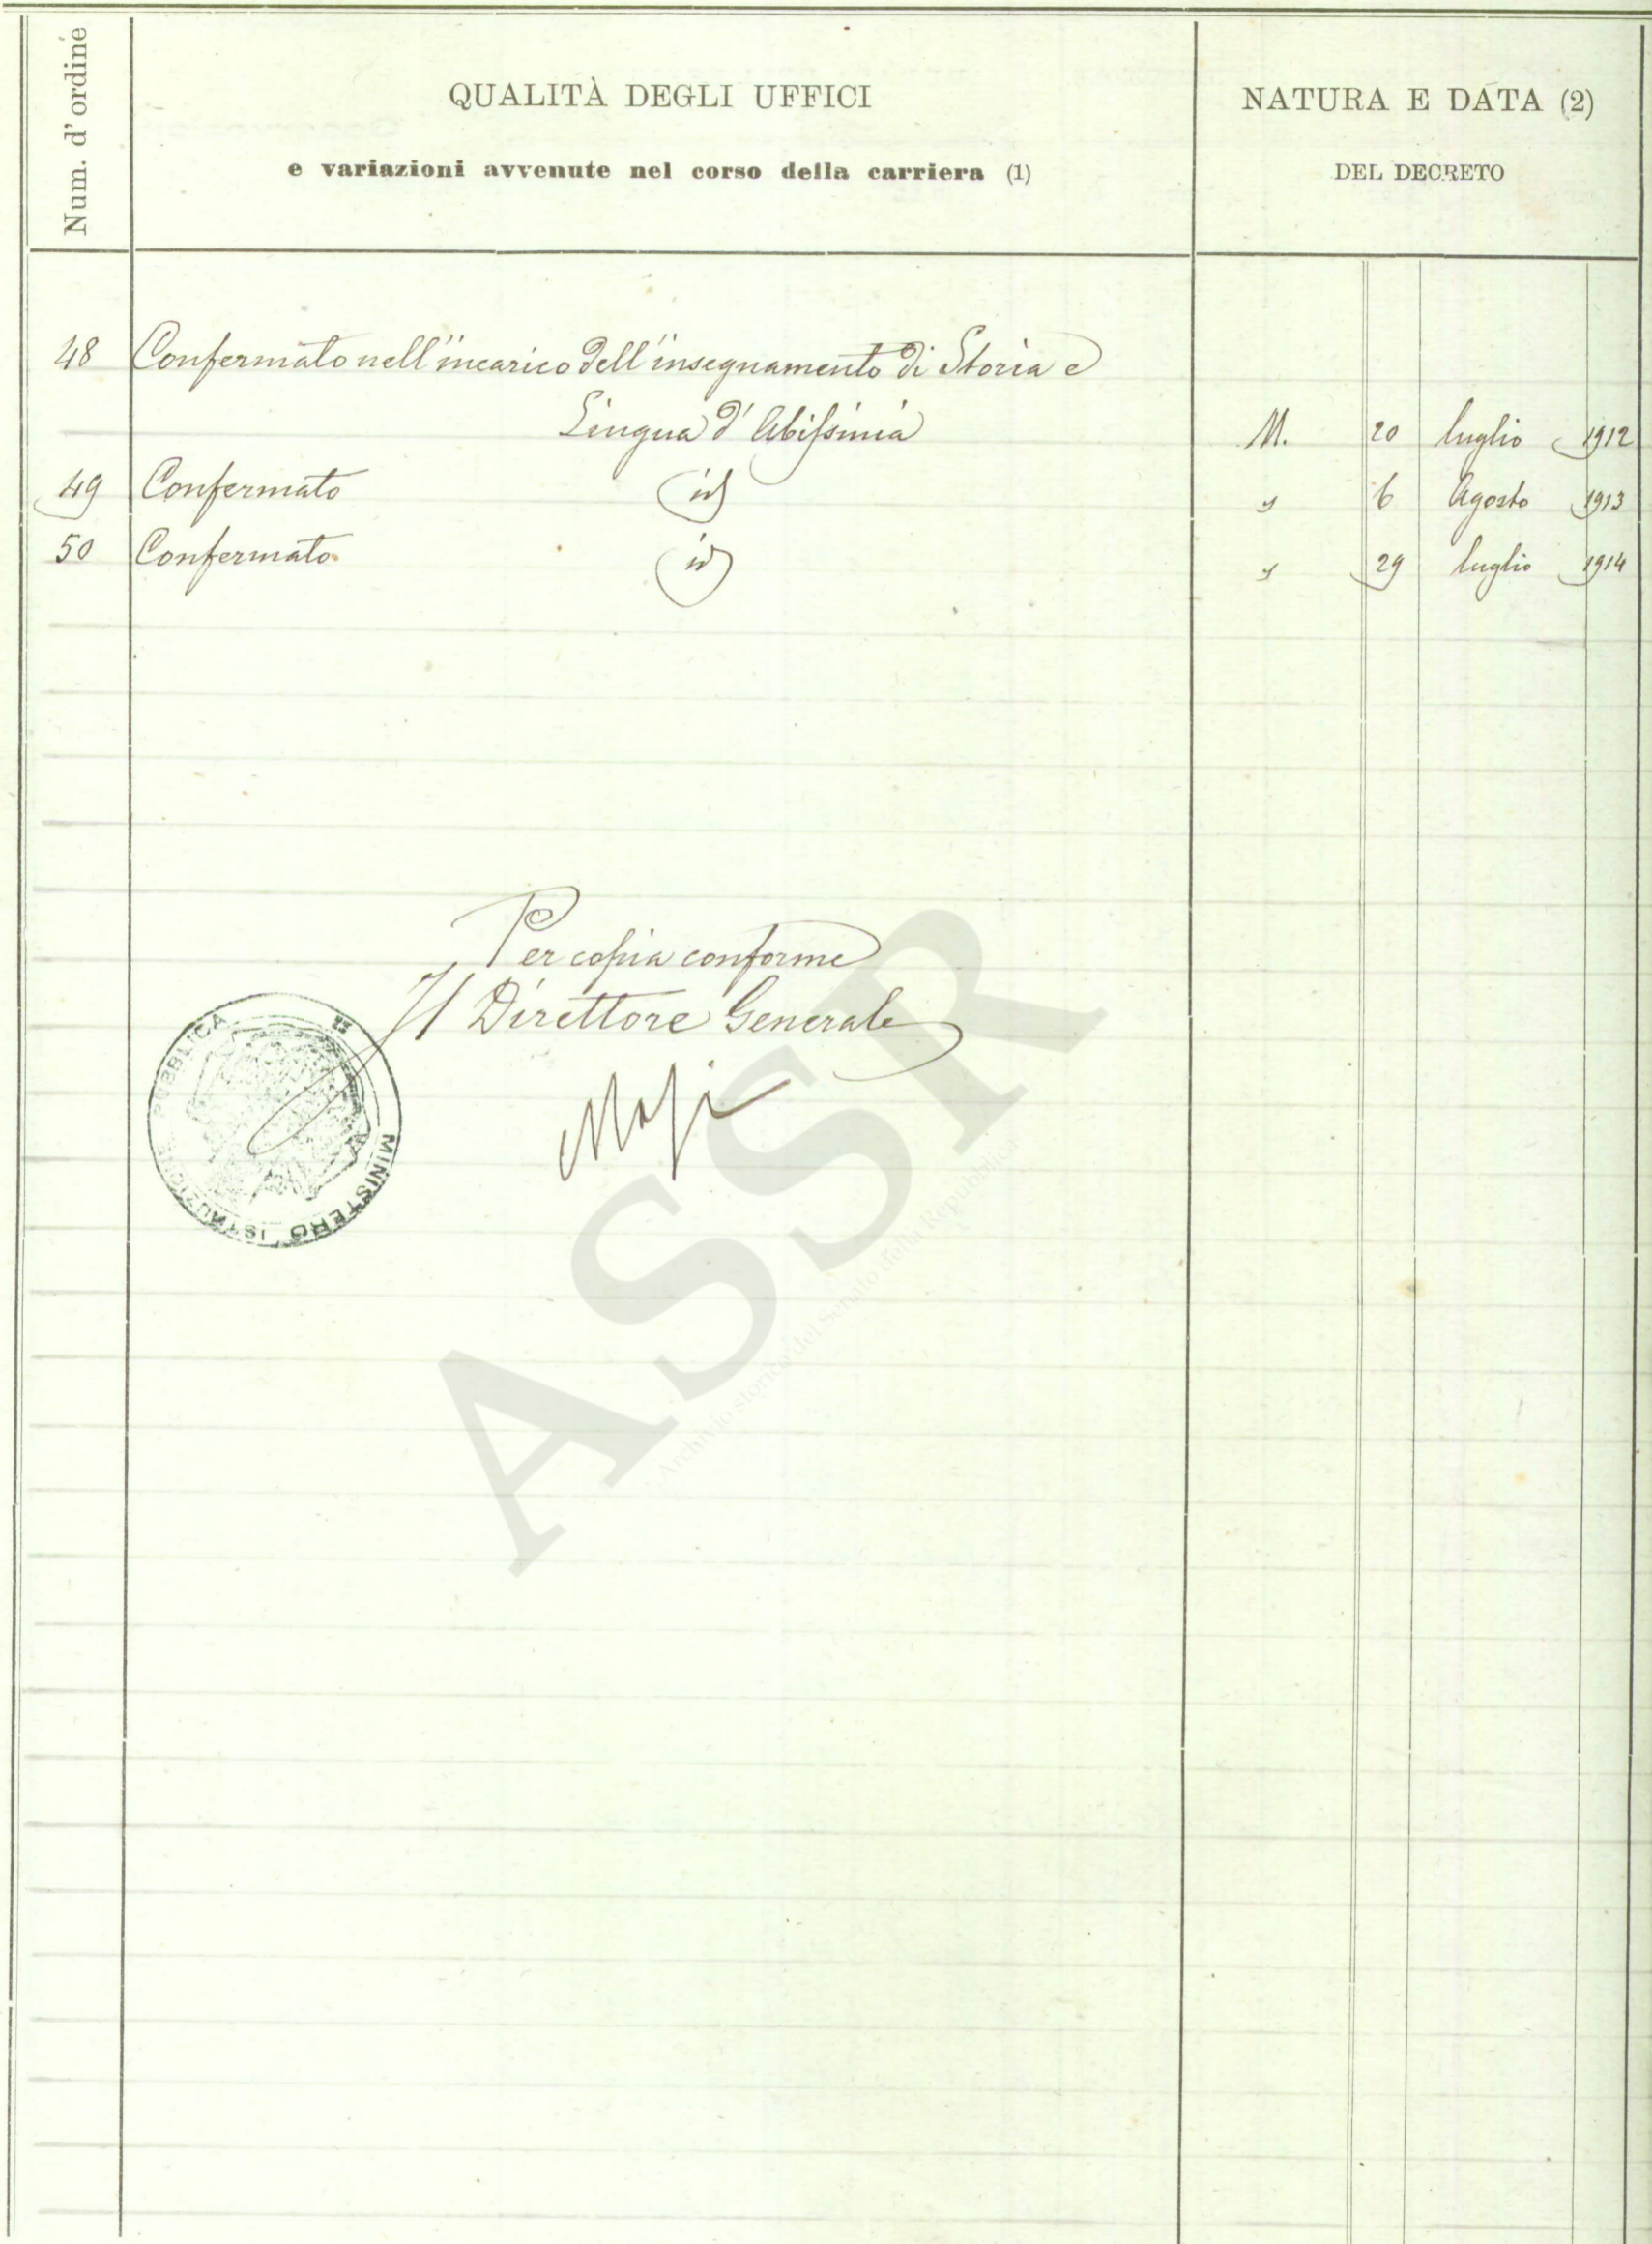 Num. d' ordine
QUALITÀ DEGLI UFFICI
e variazioni avvenute nel corso della carriera (1)
NATURA E DATA (2)
DEL DECRETO
48 Confermato nell'incarico dell'insegnamento di Storia e
Lingua d'Abissinia M. 20 luglio 1912
49 Confermato (id) " 6 Agosto 1913
50 Confermato (id) " 29 luglio 1914
Per copia conforme
Il Direttore Generale
MINISTERO ISTRUZIONE PUBBLICA
ASSR
Archivio storico del Senato della Repubblica